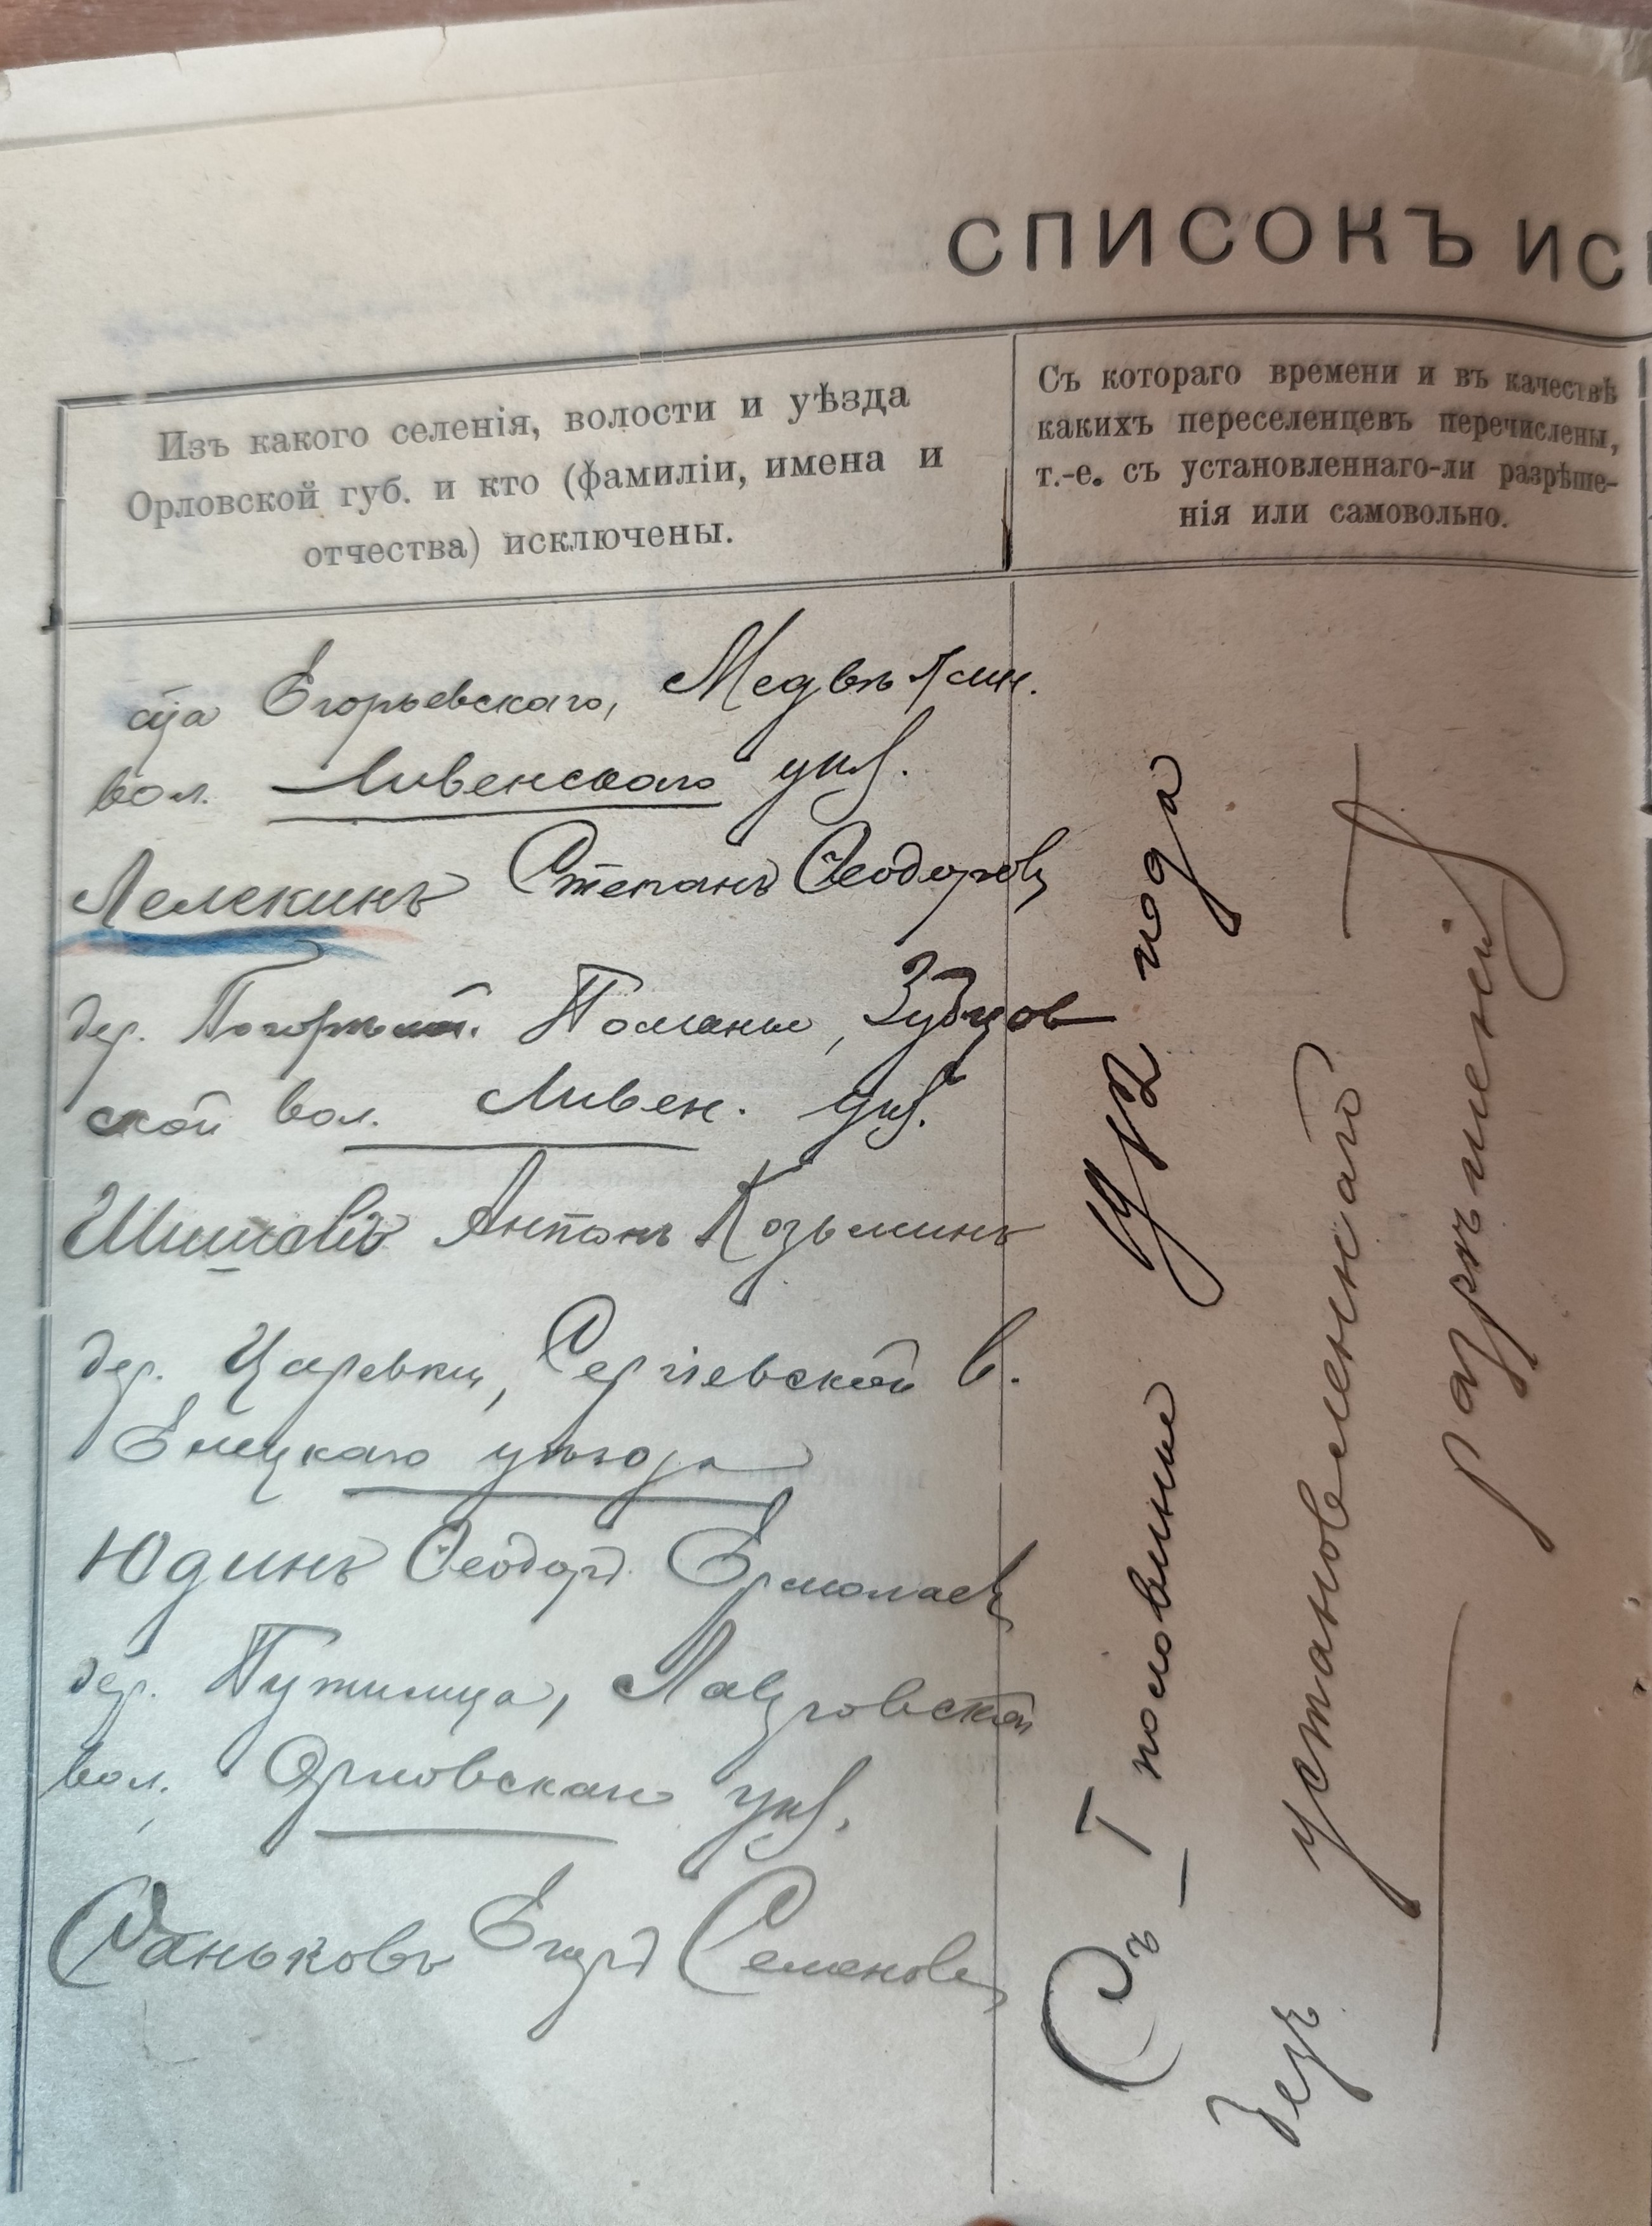 СПИСОКЪ ИС
Изъ какого селенія, волости и уѣзда
Орловской губ. и кто (фамиліи, имена и
отчества) исключены.
Съ котораго времени и въ качествѣ
какихъ переселенцевъ перечислены,
т.-е. съ установленнаго-ли разрѣше-
нія или самовольно.
Егорьевскаго,
вол. Ливенскаго уѣз.
Лелекинъ Степанъ Ѳеодоровъ
дер. Зубцов
ской вол. Ливен. уѣз.
Антонъ Козьминъ
дер. Царевки, Сергіевской в.
Елецкаго уѣзда
Юдинъ Ѳеодоръ Ермолаевъ
дер. Путимца, Лавровской
вол. Орловскаго уѣз.
Саньковъ Егоръ Семеновъ
Съ I половины года
безъ установленнаго
разрѣшенія